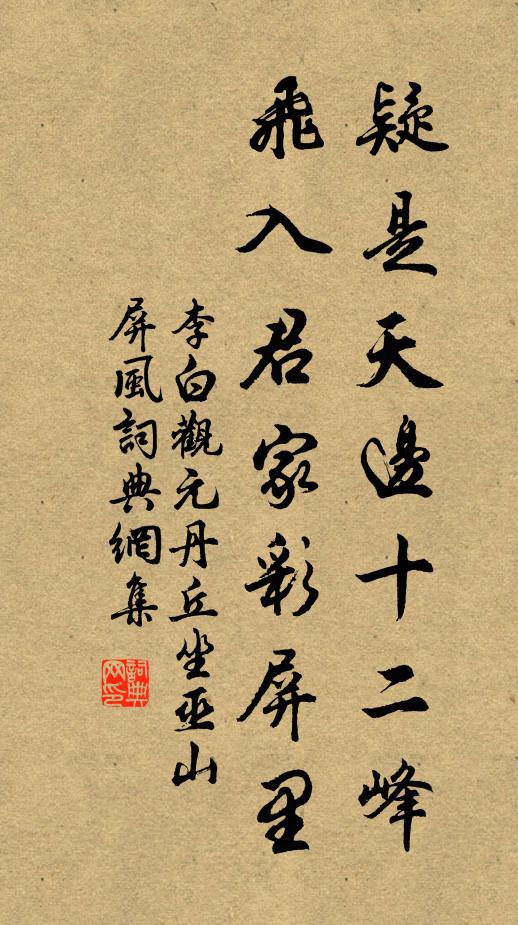 疑是天邊十二峰
飛入君家彩屏里
李白觀元丹丘坐巫山
屏風詞典網集
詞典网印